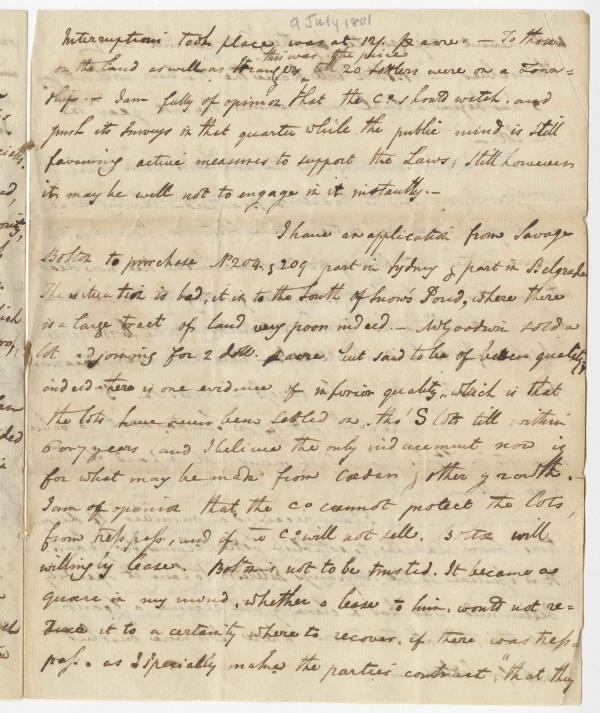 9 July 1801
Interruptions took place was at 12/. p acre. - To those
this was the price
on the land as well as strangers till 20 settlers were on a Town=
ship. - I am fully of opinion that the Co. should watch, and
push its Surveys in that quarter while the public mind is still
favouring active measures to support the Laws, still however
it may be well not to engage in it instantly. -
I have an application from Savage
Bolton to purchase No. 204. & 209 part in Sydney & part in Belgrade
The situation is bad, it is to the South of Snow's Pond, where there
is a large tract of land very poor indeed. - Mr Goodwin sold a
lot adjoining for 2 doll. p acre, but said to be of better quality,
indeed there is one evidence of inferior quality, which is that
the lots have never been settled on, tho' S lots till within
6 or 7 years, and I believe the only inducement now is
for what may be made from Cedars & other growth. -
I am of opinion that the Co cannot protect the lots,
from tresspass, and if Co will not sell. Bolton will
willingly lease. Bolton is not to be trusted. It became a
quare in my mind, whether a lease to him, would not re=
duce it to a certainty where to recover, if there was tress=
pass. as Specially make the parties contract, "that they